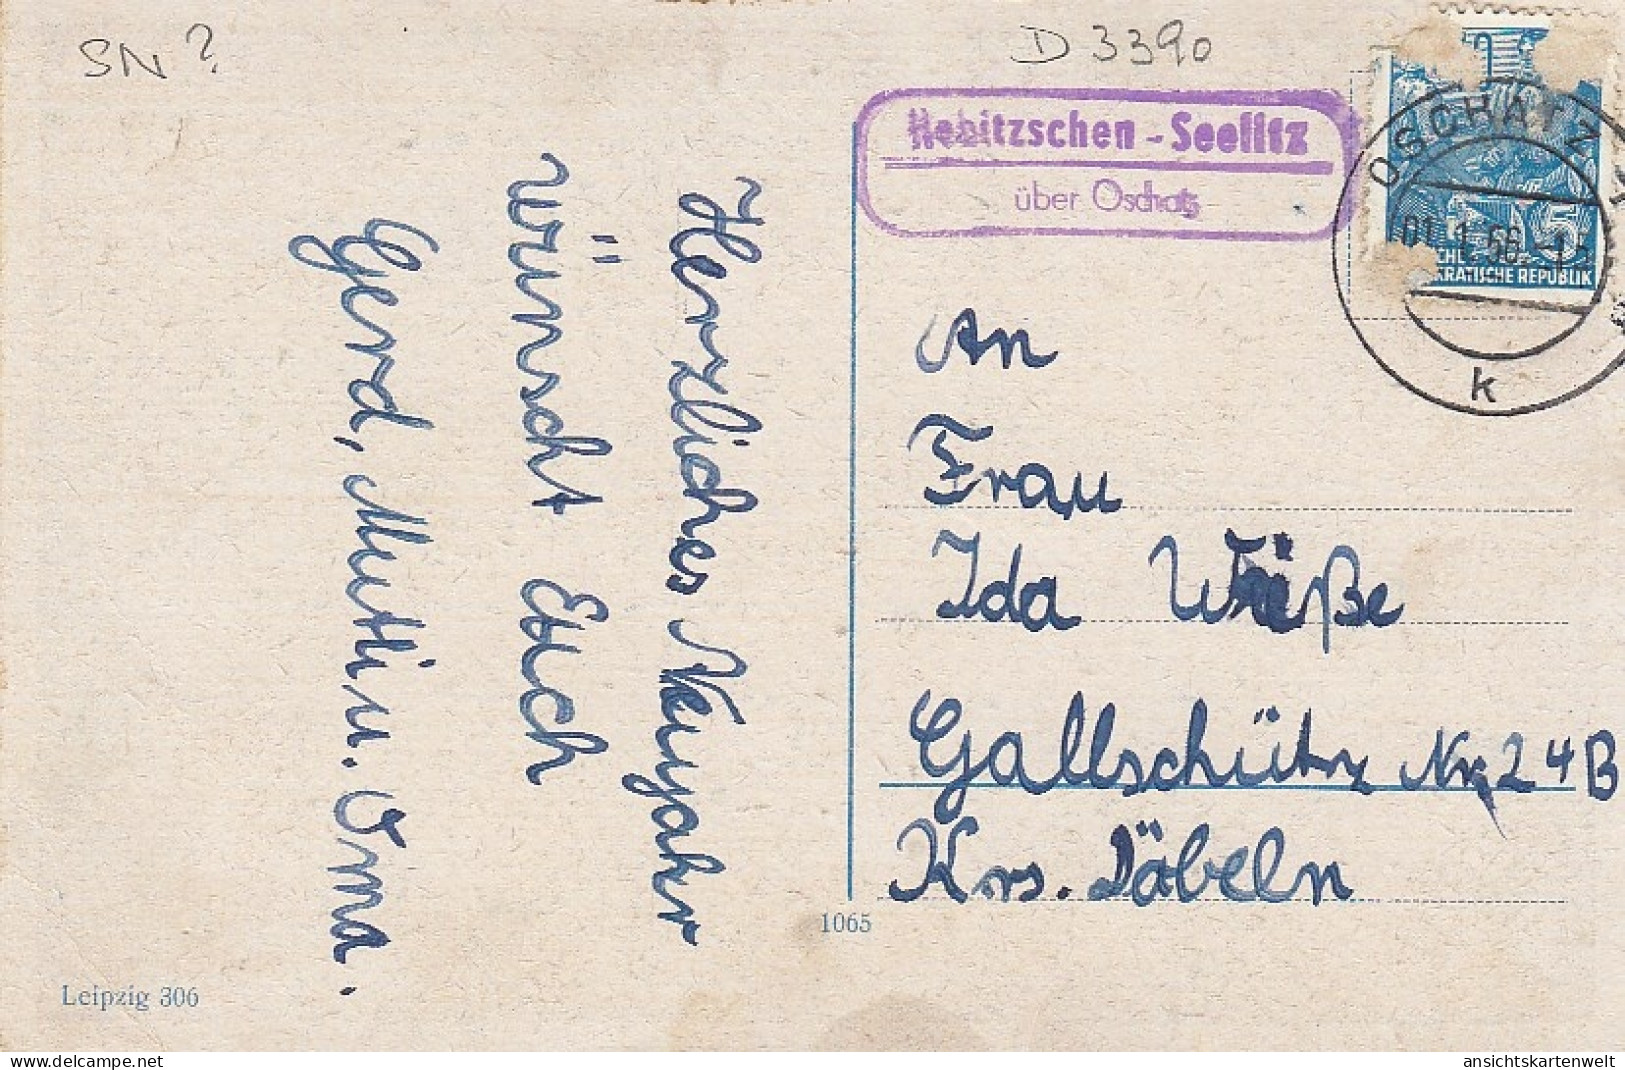 SN ?
D 3390
Nebitzschen - Seelitz
über Oschatz
OSCHATZ
01.1.56.-15
k
5
KRATISCHE REPUBLIK
Herzliches Neujahr
wünscht Euch
Gerd, Mutti u. Oma.
An
Frau
Ida Weiße
Gallschütz Nr. 24B
Krs. Döbeln
1065
Leipzig 306
ansichtskartenwelt